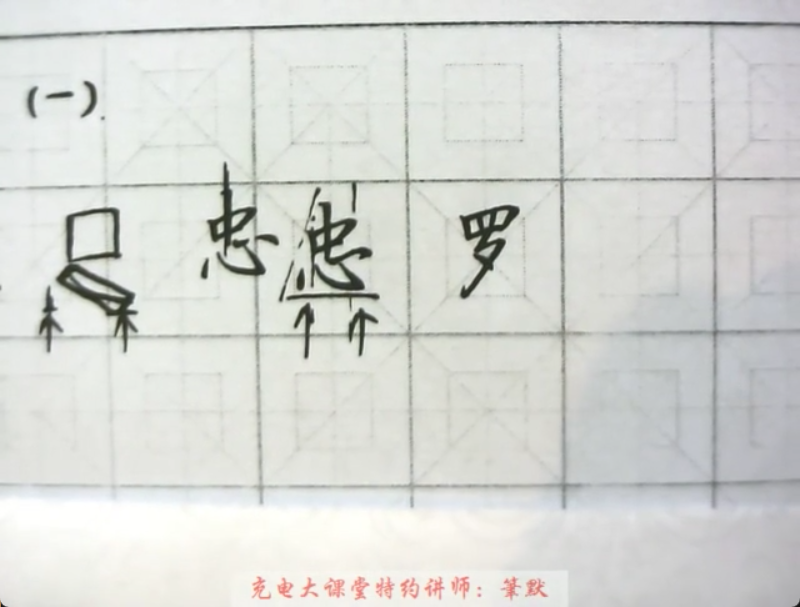 (一)
忠 忠 罗
充电大课堂特约讲师：筆默